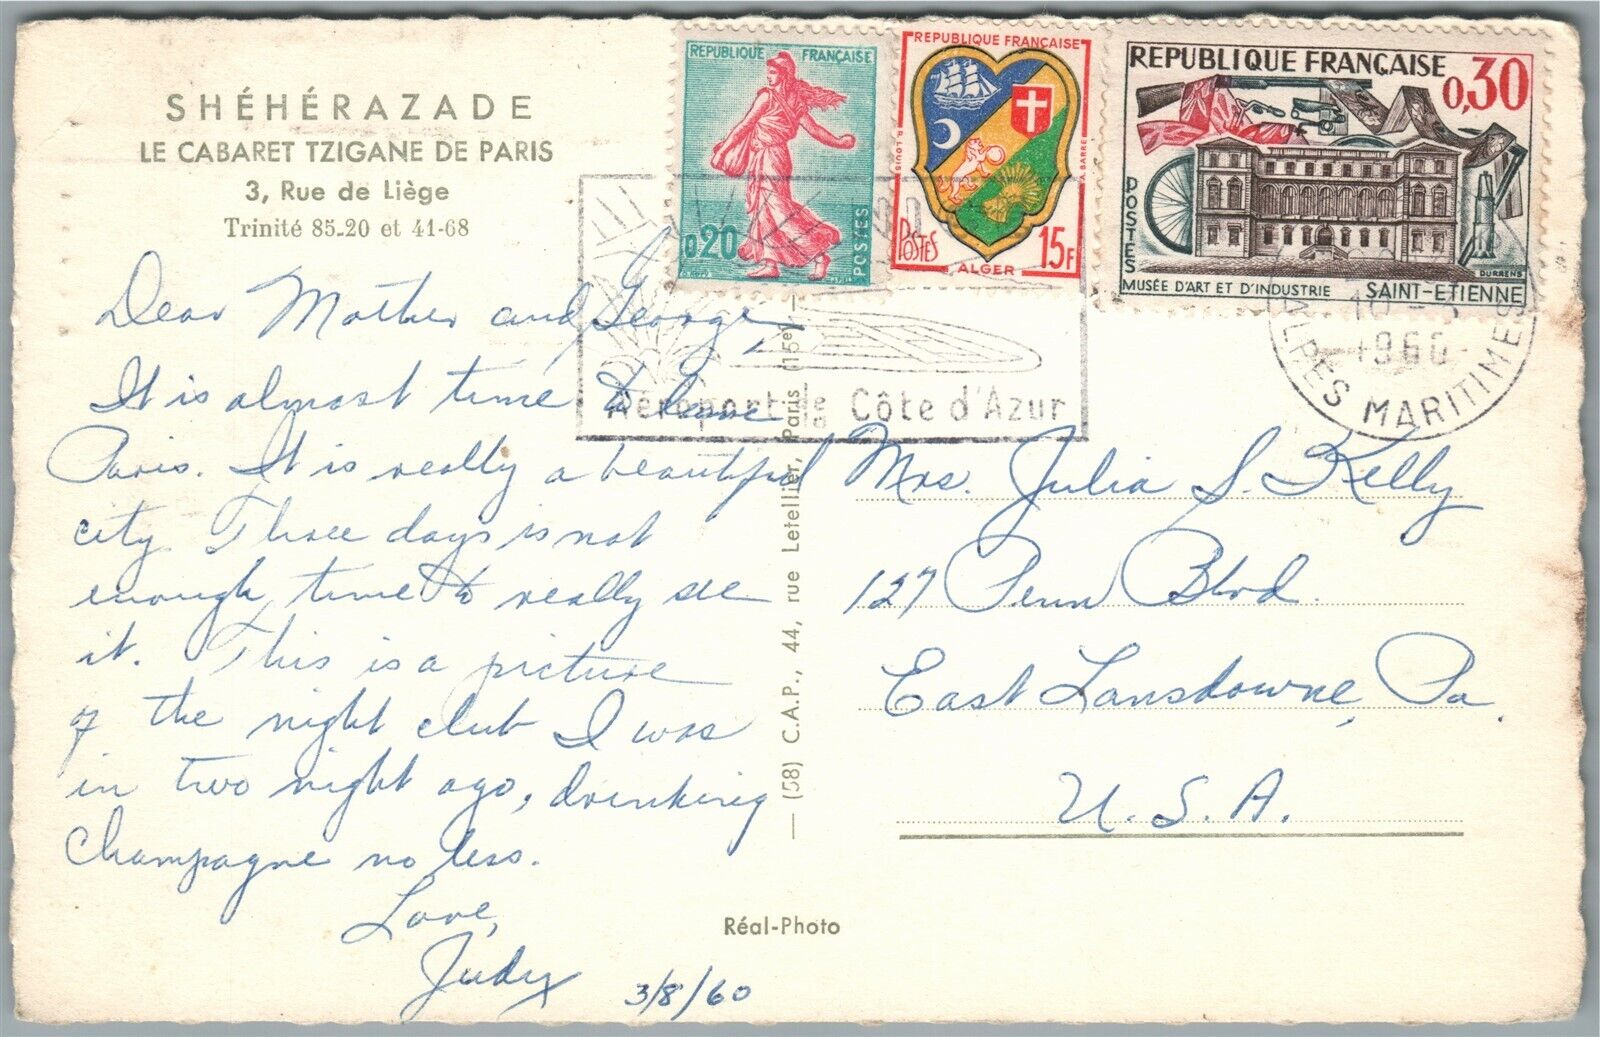 SHÉHÉRAZADE
LE CABARET TZIGANE DE PARIS
3, Rue de Liège
Trinité 85-20 et 41-68
REPUBLIQUE FRANÇAISE
0,20
POSTES
REPUBLIQUE FRANÇAISE
POSTES
15F
ALGER
REPUBLIQUE FRANÇAISE
0,30
POSTES
DURRENS
MUSÉE D'ART ET D'INDUSTRIE SAINT-ETIENNE
Aéroport de la Côte d'Azur
1960
ALPES MARITIMES
Dear Mother and George,
It is almost time to leave
Paris. It is really a beautiful
city. Three days is not
enough time to really see
it. This is a picture
of the night club I was
in two night ago, drinking
Champagne no less.
Love,
Judy
3/8/60
— (58) C.A.P., 44, rue Letellier, Paris (15e) —
Réal-Photo
Mrs. Julia S. Kelly
127 Penn Blvd.
East Lansdowne, Pa.
U.S.A.